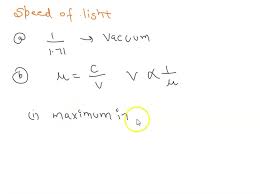 Speed of light
(a) 1/1.71 → Vacuum
(b) μ = c/v v ∝ 1/μ
(i) maximum in